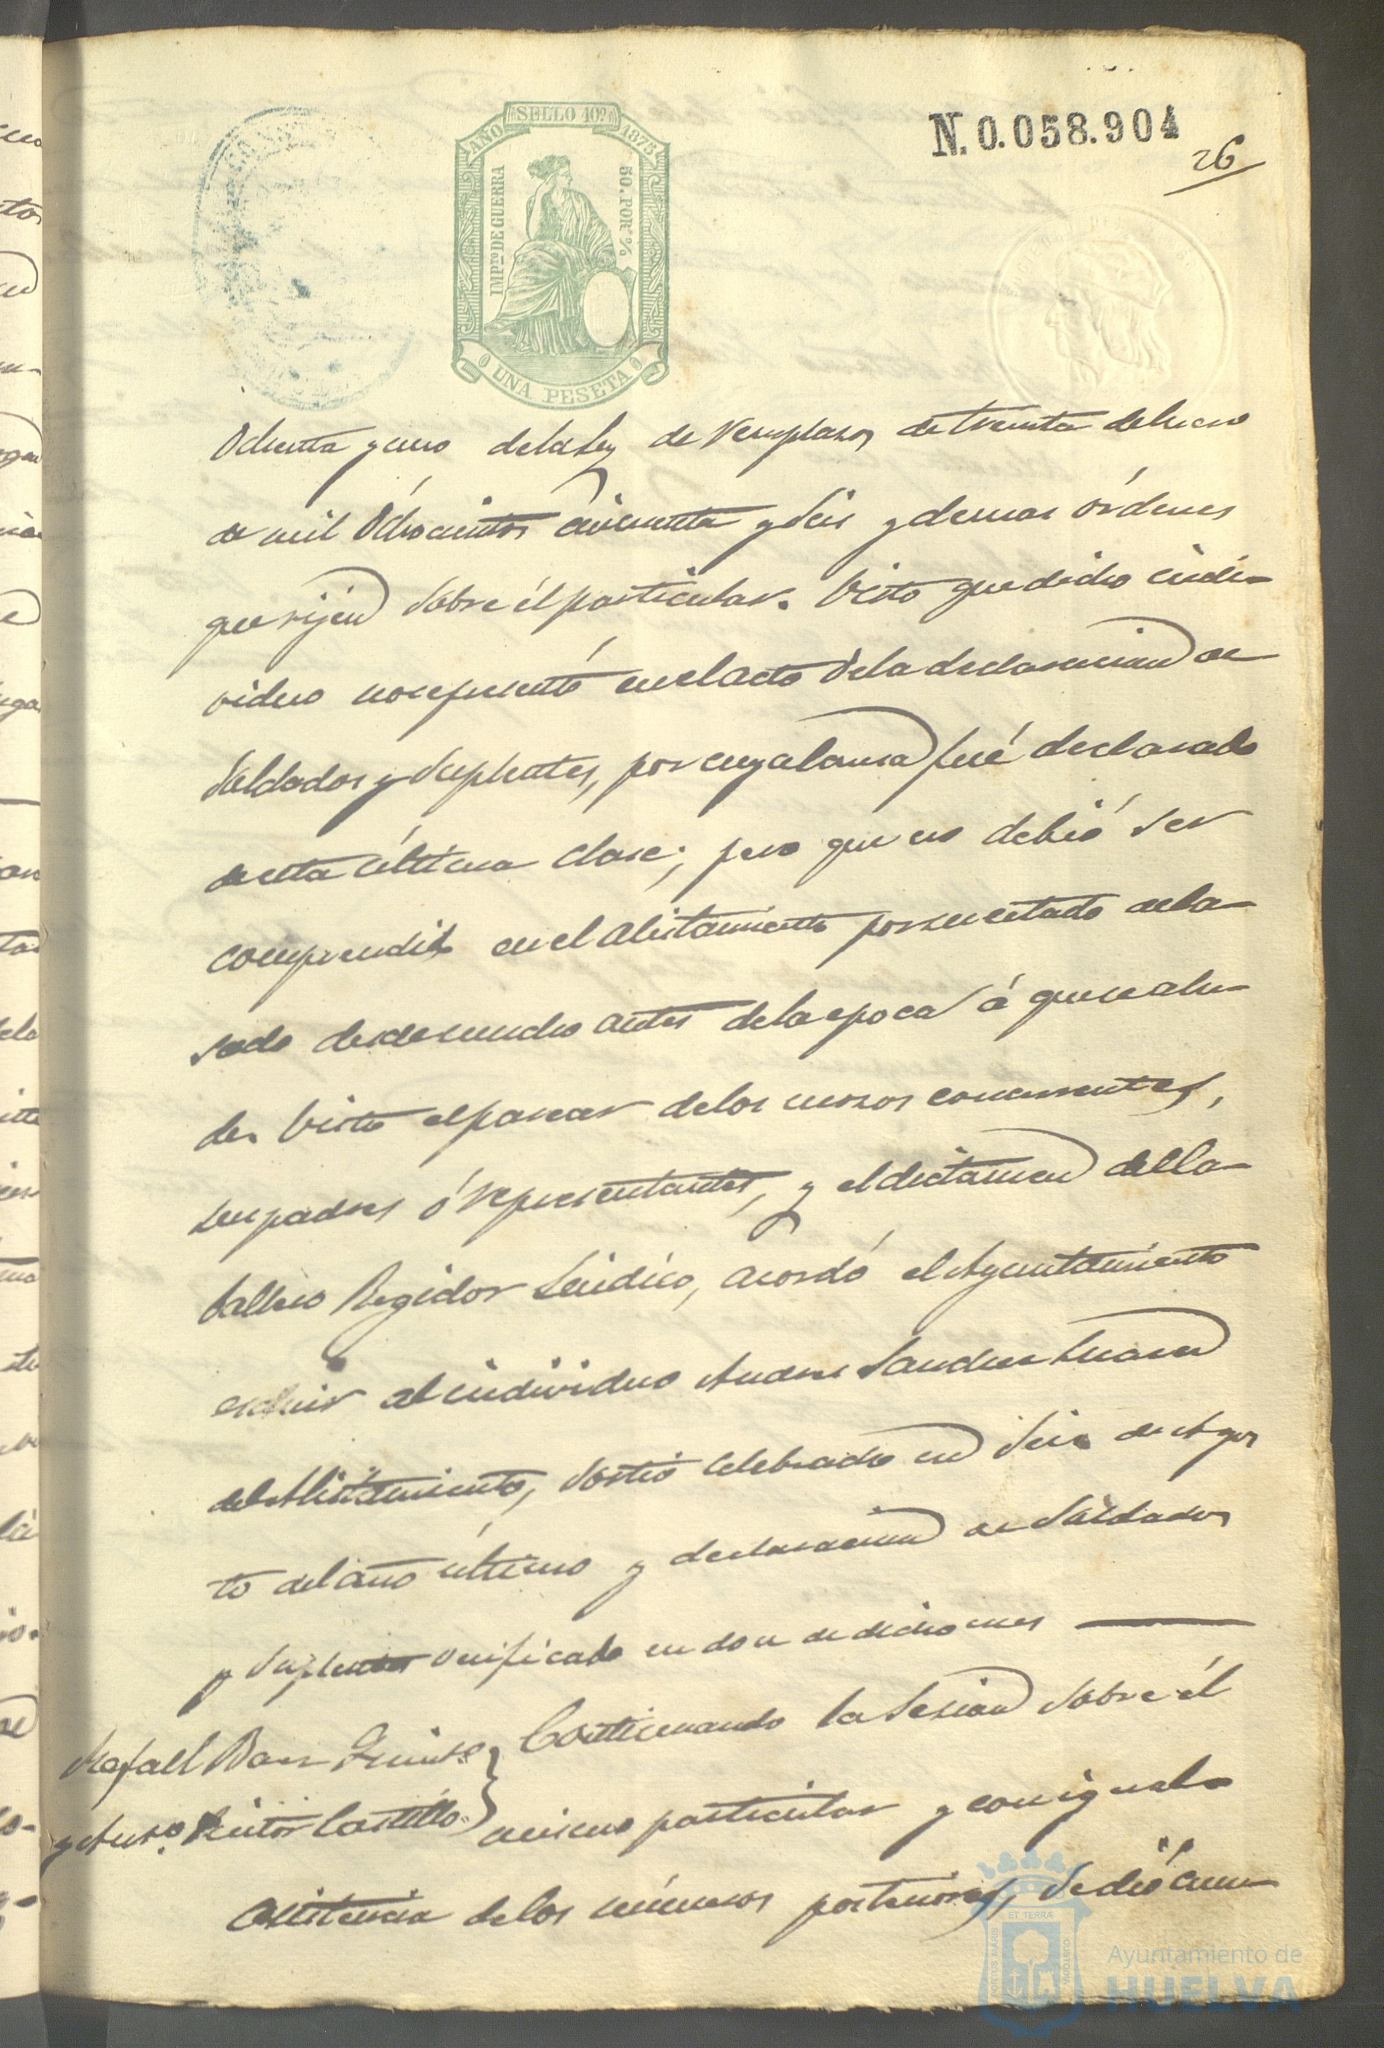 SELLO 10º
AÑO 1875
IMPTO DE GUERRA
50. POR %
UNA PESETA
N. 0.058.904
26
Ochenta y uno de la Ley de reemplazos de treinta de Enero
de mil Ochocientos cincuenta y Seis y demas órdenes
que rijen sobre él particular. Visto que dicho indi-
viduo no se presentó en el acto de la declaracion de
Soldados y Suplentes, por cuya Causa fué declarado
de esta última clase; pero que no debió ser
comprendido en el Alistamiento por su estado de ca-
sado desde mucho antes de la epoca á que se alu-
de. Visto el parecer de los mozos concurrentes,
sus padres ó representantes, y el dictamen del Ca-
ballero Regidor Síndico, acordó el Ayuntamiento
escluir al individuo Andres Sanchez
del Alistamiento, Sorteo celebrado en Seis de Agos
to del año último y declaracion de Soldados
y Suplentes verificado en doce de dicho mes
Rafael Baez
y Anto. Castillo.
Continuando la Sesion sobre él
mismo particular y con igual
asistencia de los números posteriores, Se dió cuen-
ET TERRÆ
Ayuntamiento de
HUELVA